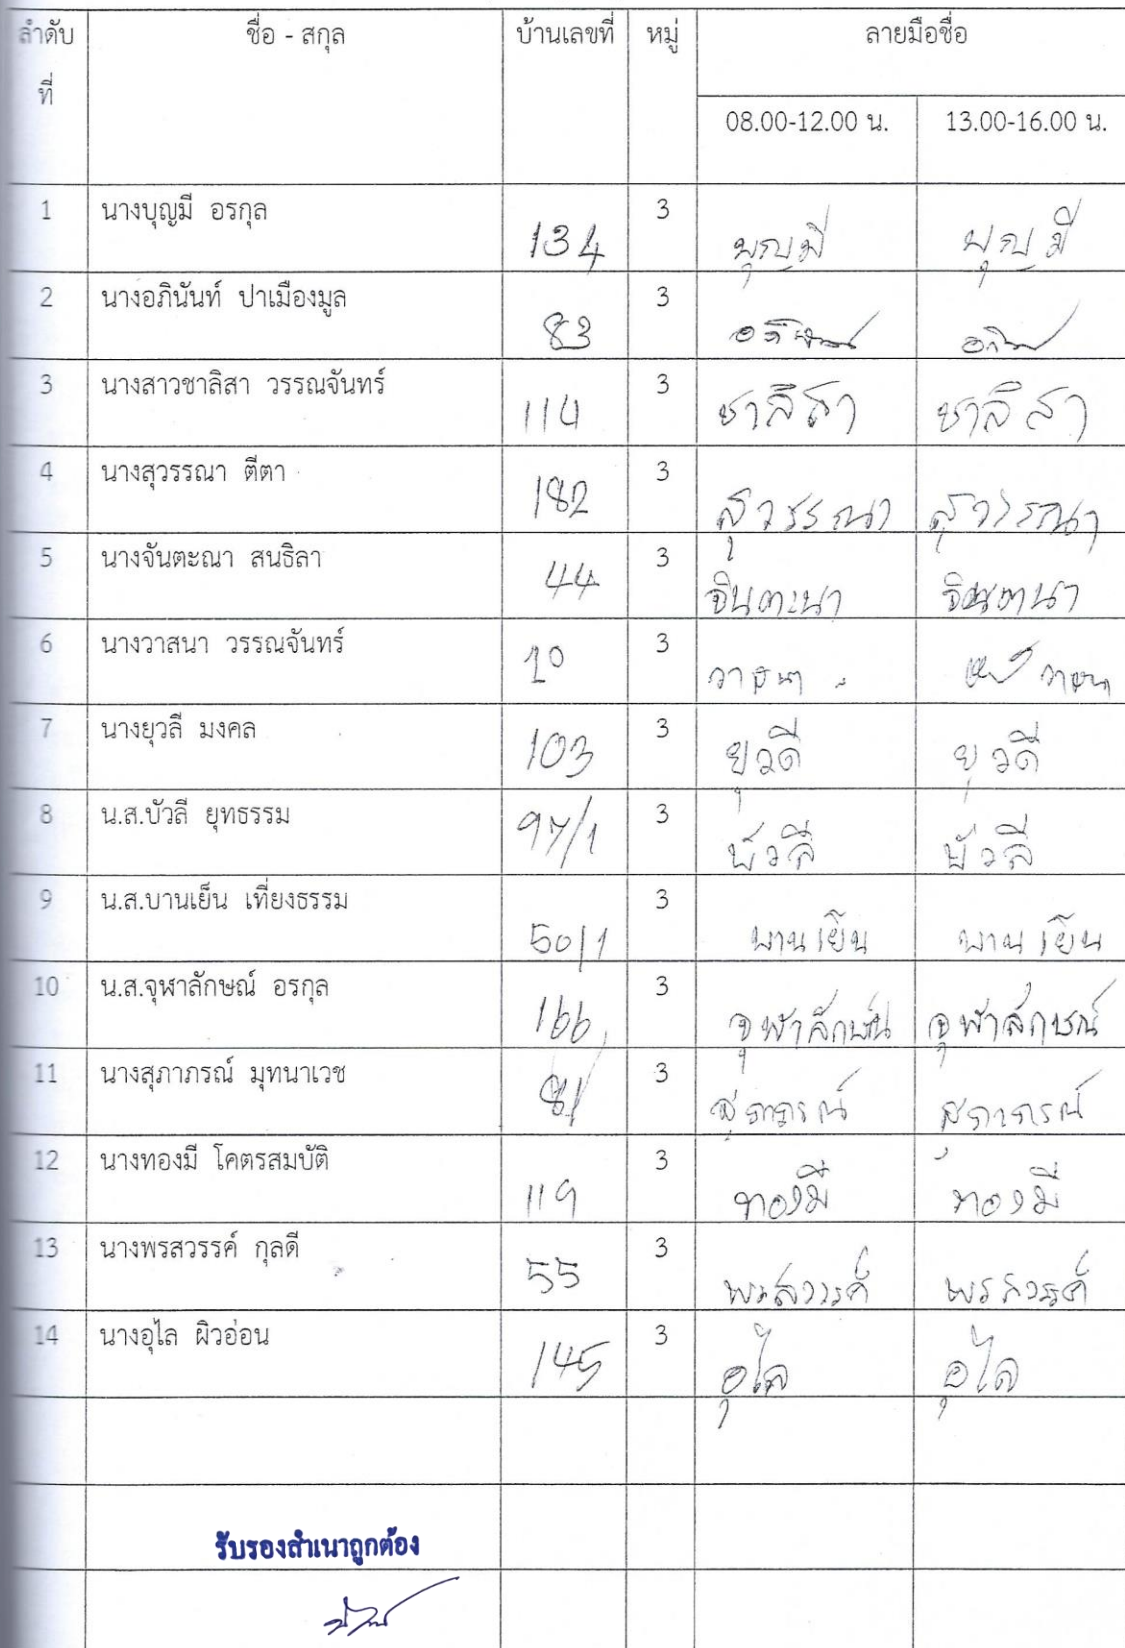 ลำดับที่ ชื่อ - สกุล บ้านเลขที่ หมู่ ลายมือชื่อ
08.00-12.00 น. 13.00-16.00 น.
1 นางบุญมี อรกุล 134 3 บุญมี บุญมี
2 นางอภินันท์ ปาเมืองมูล 83 3
3 นางสาวชาลิสา วรรณจันทร์ 114 3 ชาลิสา ชาลิสา
4 นางสุวรรณา ตีตา 182 3 สุวรรณา สุวรรณา
5 นางจันตะณา สนธิลา 44 3 จินตะนา จินตนา
6 นางวาสนา วรรณจันทร์ 3 วาสนา วาสนา
7 นางยุวลี มงคล 103 3 ยุวดี ยุวดี
8 น.ส.บัวลี ยุทธรรม 97/1 3 บัวลี บัวลี
9 น.ส.บานเย็น เที่ยงธรรม 50/1 3 บานเย็น บานเย็น
10 น.ส.จุฬาลักษณ์ อรกุล 166 3 จุฬาลักษณ์ จุฬาลักษณ์
11 นางสุภาภรณ์ มุทนาเวช 81 3 สุภาภรณ์ สุภาภรณ์
12 นางทองมี โคตรสมบัติ 119 3 ทองมี ทองมี
13 นางพรสวรรค์ กุลดี 55 3 พรสวรรค์ พรสวรรค์
14 นางอุไล ผิวอ่อน 145 3 อุไล อุไล
รับรองสำเนาถูกต้อง